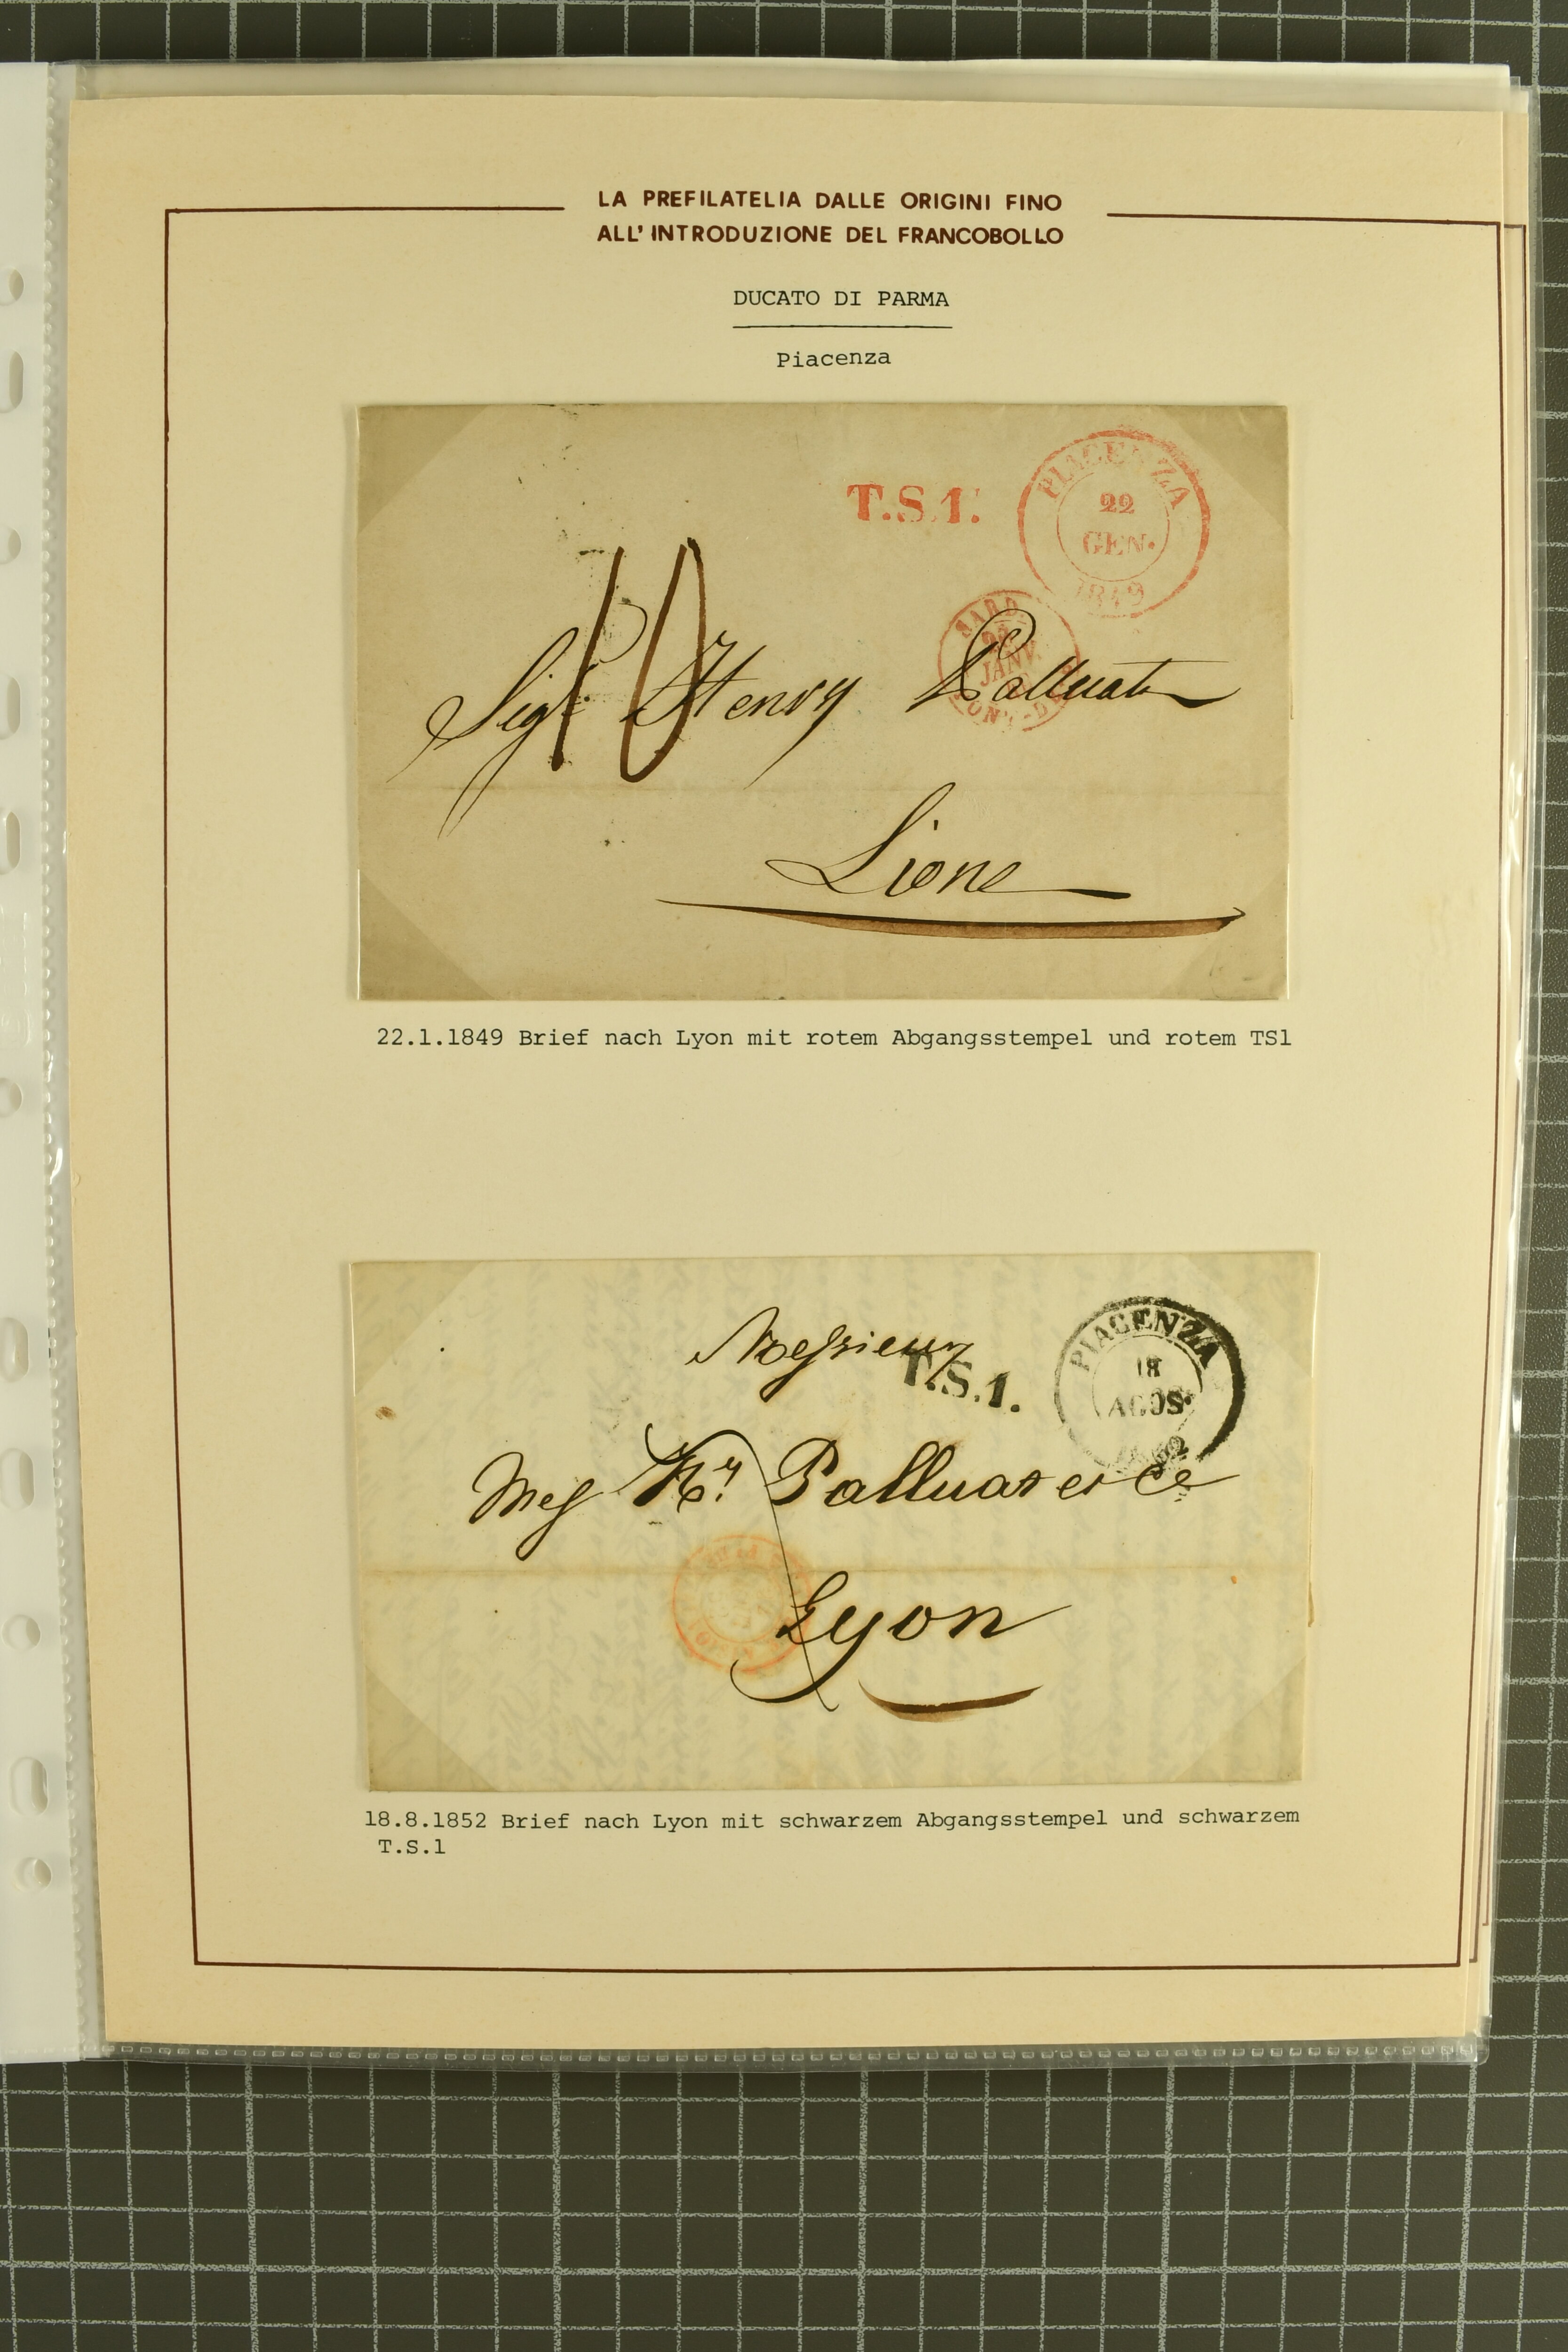 LA PREFILATELIA DALLE ORIGINI FINO
ALL' INTRODUZIONE DEL FRANCOBOLLO
DUCATO DI PARMA
Piacenza
T.S.1.
PIACENZA
22
GEN.
1849
SARD.
JANV.
10
Sigr. Henry Palluat
Lione
22.1.1849 Brief nach Lyon mit rotem Abgangsstempel und rotem TS1
Messieurs
T.S.1.
PIACENZA
18
AGOS.
Mes Hry. Palluat et Ce
Lyon
18.8.1852 Brief nach Lyon mit schwarzem Abgangsstempel und schwarzem
T.S.1